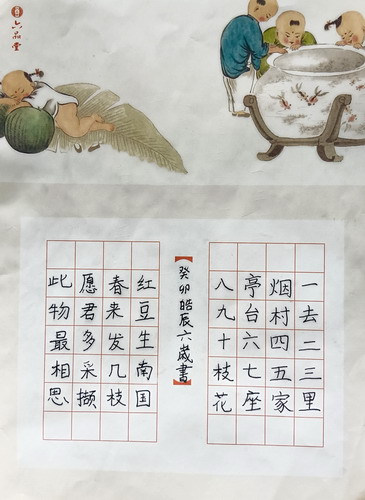 六品堂
一去二三里
烟村四五家
亭台六七座
八九十枝花
癸卯皓辰六歲書
红豆生南国
春来发几枝
愿君多采撷
此物最相思